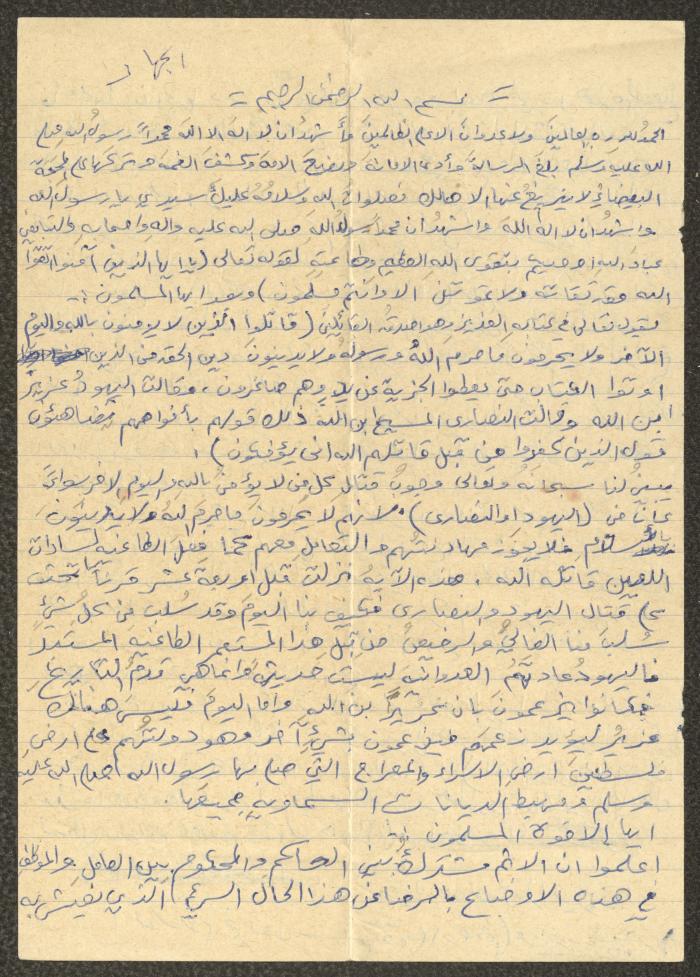 الجهاد
= بسم الله الرحمن الرحيم =
الحمد لله رب العالمين ولا عدوان إلا على الظالمين وأشهد أن لا اله الا الله محمداً رسول الله صلى
الله عليه وسلم بلغ الرسالة وأدى الامانة ونصح الامة وكشف الغمة وتركها على المحجة
البيضاء لا يزيغ عنها الا هالك فصلوات الله وسلامه عليك سيدي يا رسول الله
وأشهد ان لا اله الا الله واشهد أن محمداً رسول الله صلى الله عليه وآله واصحابه والتابعين
عباد الله اوصيكم بتقوى الله العظيم وطاعته لقوله تعالى (يا ايها الذين آمنوا اتقوا
الله حق تقاته ولا تموتن الا وانتم مسلمون) وبعد ايها المسلمون :-
يقول تعالى في كتابه العزيز وهو اصدق القائلين (قاتلوا الذين لا يؤمنون بالله واليوم
الآخر ولا يحرمون ما حرم الله ورسوله ولا يدينون دين الحق من الذين
اوتوا الكتاب حتى يعطوا الجزية عن يد وهم صاغرون، وقالت اليهود عزير
ابن الله وقالت النصارى المسيح ابن الله ذلك قولهم بأفواههم يضاهئون
قول الذين كفروا من قبل قاتلهم الله انى يؤفكون)،
يبين لنا سبحانه وتعالى وجوب قتال كل من لا يؤمن بالله واليوم الآخر سواء
كان من (اليهود او النصارى) لانهم لا يحرمون ما حرم الله ولا يدينون
بالاسلام فلا يجوز مهادنتهم والتعامل معهم كما فعل الطاغية السادات
اللعين قاتله الله. هذه الآية نزلت قبل اربعة عشر قرناً تحث
على قتال اليهود والنصارى فكيف بنا اليوم وقد سلب من كل شيء
سلب منا الغالي والرخيص من قبل هذا المستعمر الطاغية المستبد
فاليهود عادتهم العدوانية ليست حديثة وانما هي قدم التاريخ
فكانوا يزعمون بان عزيراً بن الله واما اليوم فليس هنالك
عزير ليؤيد زعمهم فيزعمون بشيء آخر وهو دولتهم على ارض
فلسطين ارض الاسراء والمعراج التي صلى بها رسول الله صلى الله عليه
وسلم ومهبط الديانات السماوية جميعها.
ايها الاخوة المسلمون :-
اعلموا ان الاثم مشترك بين الحاكم والمحكوم بين العامل والموظف
في هذه الاوضاع بالرضا عن هذا الحال السيء الذي نعيش به